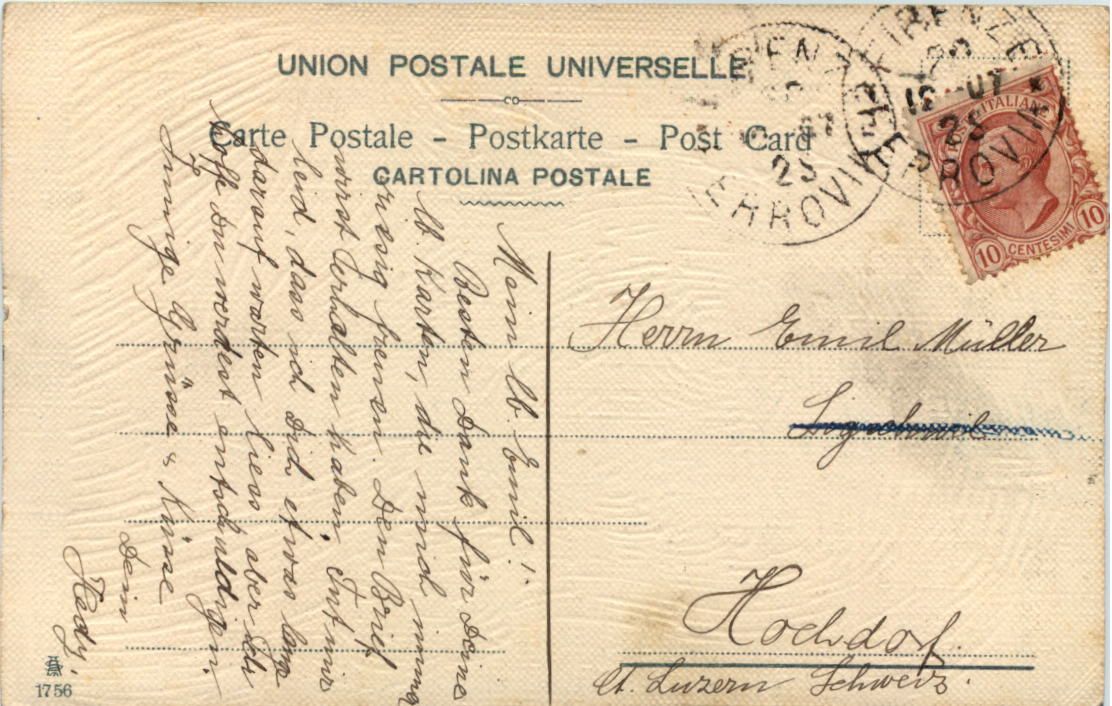 UNION POSTALE UNIVERSELLE
Carte Postale - Postkarte - Post Card
CARTOLINA POSTALE
FIRENZE
FERROVIA
25
FIRENZE
FERROVIA
25
POSTE ITALIANE
10 CENTESIMI 10
Herrn Emil Müller
Hochdorf.
Ct. Luzern Schweiz.
Mein lb. Emil!
Besten Dank für Deine
lb. Karten, die mich immer
riesig freuen. Den Brief
wirst erhalten haben. Tut mir
leid, dass ich Dich etwas lange
darauf warten liess aber ich
hoffe Du werdest entschuldigen.
Innige Grüsse & Küsse
Dein
Hedy.
1756